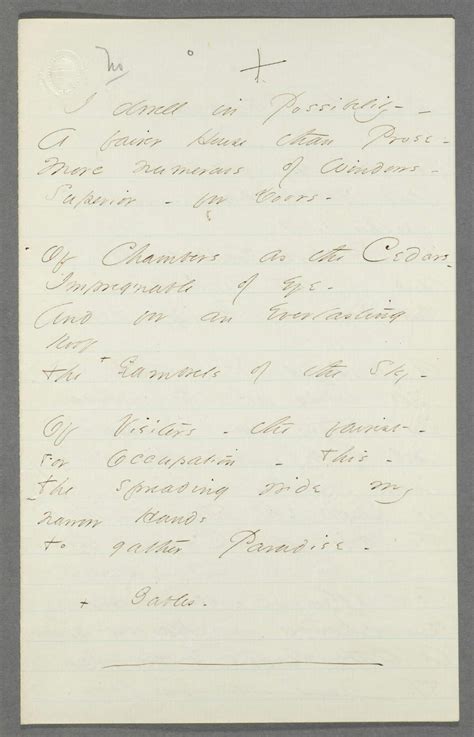 No
I dwell in Possibility -
A fairer House than Prose -
More numerous of Windows -
Superior - for Doors -
Of Chambers as the Cedars -
Impregnable of Eye -
And for an Everlasting
Roof
The + Gambrels of the Sky -
Of Visiters - the fairest -
For Occupation - This -
The spreading wide my
narrow Hands
To gather Paradise -
+ Gables -